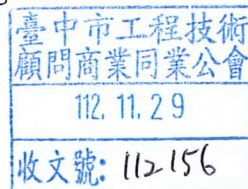 臺中市工程技術
顧問商業同業公會
112. 11. 29
收文號: 112156